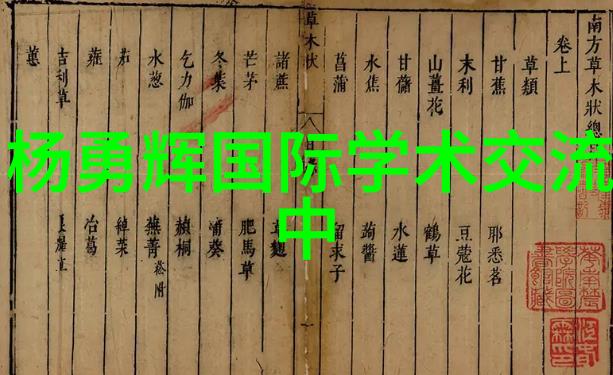 杨勇辉国际学术交流
中
南方草木狀總
卷上
草類
甘蕉 耶悉茗
末利 豆蔻花
山薑花 鶴草
甘藷 水蓮
水蕉 蒟醬
菖蒲 留求子
草木狀
諸蔗 草麴
芒茅 肥馬草
冬葉 蒲葵
乞力伽 赬桐
水葱 蕪菁 菘附
茄 綽菜
蕹 冶葛
吉利草
蕙